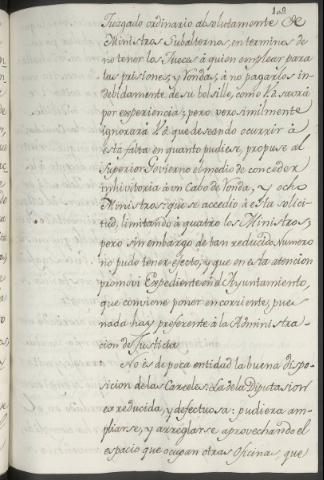 Juzgado ordinario absolutamente de
Ministros Subalternos, en terminos de
no tener los Jueces á quien emplear para
las prisiones, y Rondas, á no pagarlos in-
debidamente de su bolsillo, como V.S. sabrá
por experiencia; pero verosimilmente
ignorará V.S. que deseando ocurrir à
esta falta en quanto pudiese, propuse al
Superior Govierno el medio de conceder
inhivitoria à un Cabo de Ronda, y ocho
Ministros: que se accedió à esta solici-
tud, limitando à quatro los Ministros;
pero sin embargo de tan reducido Numero
no pudo tener efecto, y que en esta atencion
promoví Expediente en el Ayuntamiento,
que conviene poner en corriente, pues
nada hay preferente à la Administra-
cion de Justicia.
No es de poca entidad la buena dispo-
sicion de las Carceles: La de la Diputacion
es reducida, y defectuosa: pudiera am-
pliarse, y arreglarse aprovechando el
espacio que ocupan otras Oficinas, que